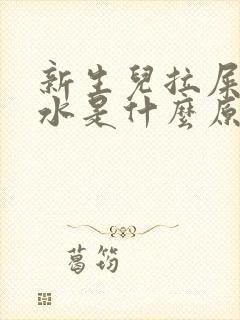 新生兒拉屎
水是什麼原
葛筠